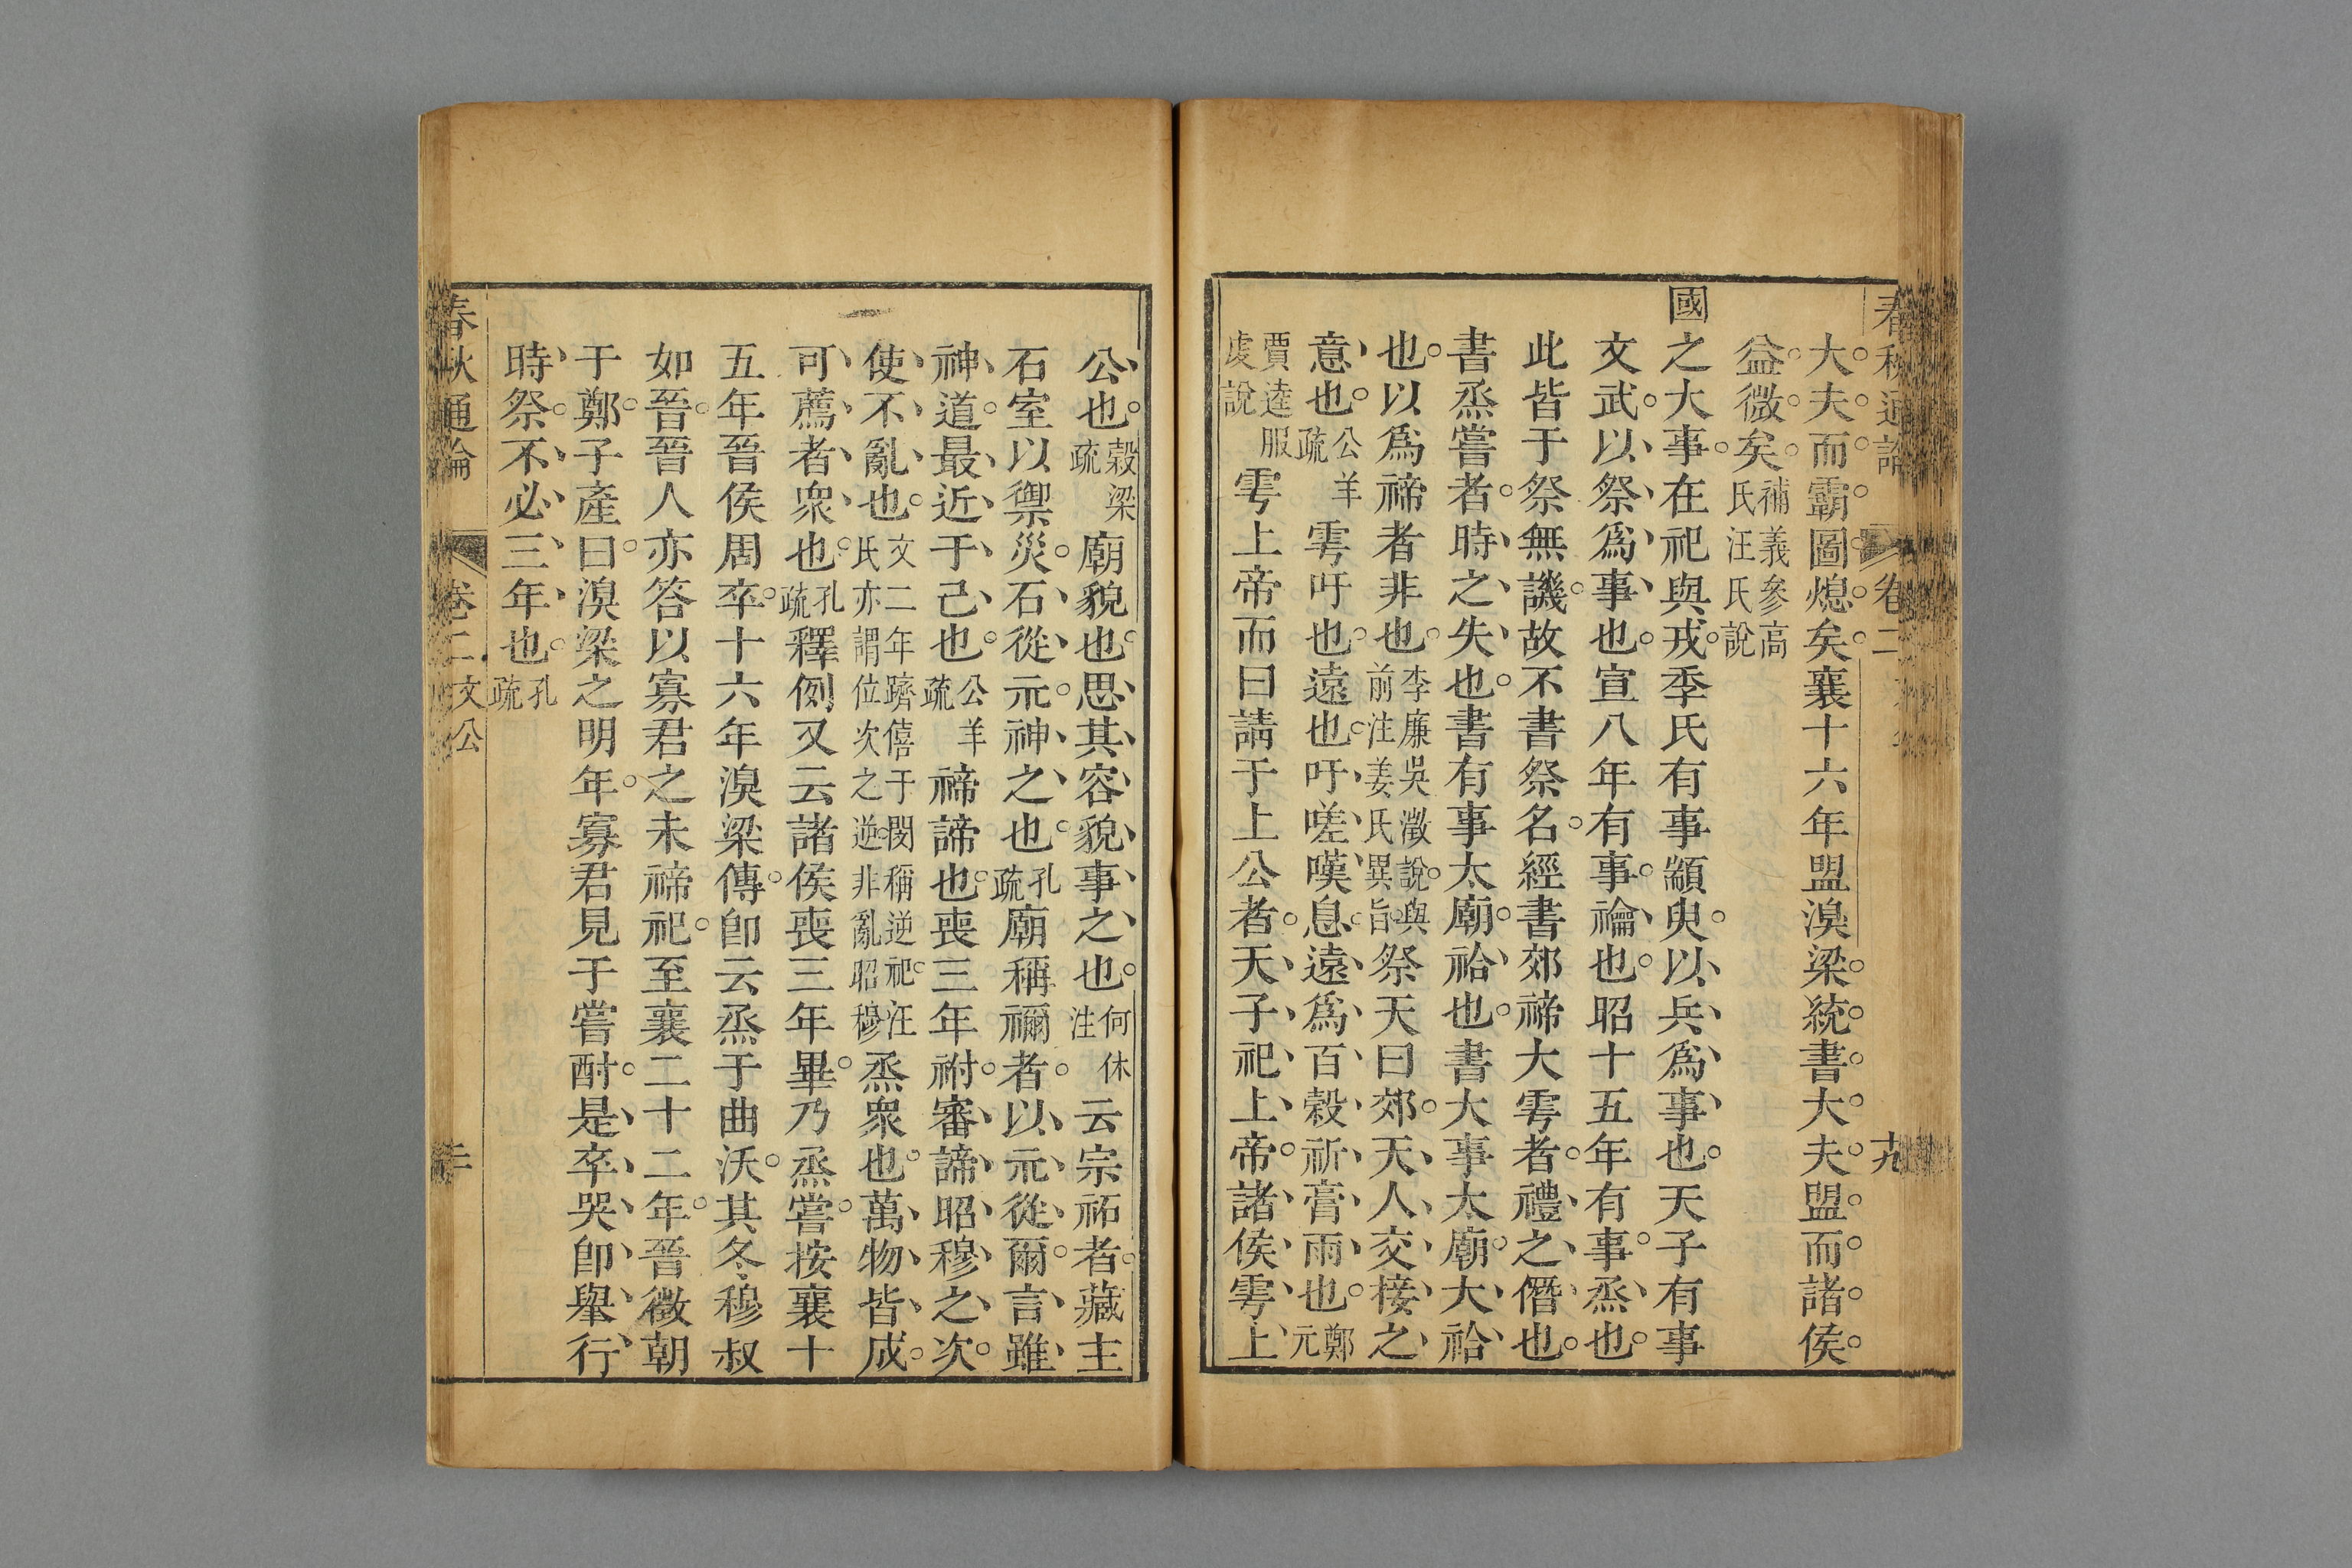 春秋通論 卷二 十九
大夫而霸圖熄矣襄十六年盟湨梁統書大夫盟而諸侯
益微矣補義參高氏汪氏說
國之大事在祀與戎季氏有事顓臾以兵爲事也天子有事
文武以祭爲事也宣八年有事禴也昭十五年有事烝也
此皆于祭無譏故不書祭名經書郊禘大雩者禮之僭也
書烝嘗者時之失也書有事太廟祫也書大事太廟大祫
也以爲禘者非也李廉吳澂說與前注姜氏異旨祭天曰郊天人交接之
意也公羊疏雩吁也遠也吁嗟嘆息遠爲百穀祈膏雨也鄭元
賈逵服虔說雩上帝而曰請于上公者天子祀上帝諸侯雩上
公也穀梁疏廟貌也思其容貌事之也何休注云宗祏者藏主
石室以禦災石從示神之也孔疏廟稱禰者以示從爾言雖
神道最近于己也公羊疏禘諦也喪三年祔審諦昭穆之次
使不亂也文二年躋僖于閔稱逆祀汪氏亦謂位次之逆非亂昭穆烝衆也萬物皆成
可薦者衆也孔疏釋例又云諸侯喪三年畢乃烝嘗按襄十
五年晉侯周卒十六年湨梁傳卽云烝于曲沃其冬穆叔
如晉晉人亦答以寡君之未禘祀至襄二十二年晉徵朝
于鄭子產曰湨梁之明年寡君見于嘗酎是卒哭卽舉行
時祭不必三年也孔疏
春秋通論 卷二 文公 二十